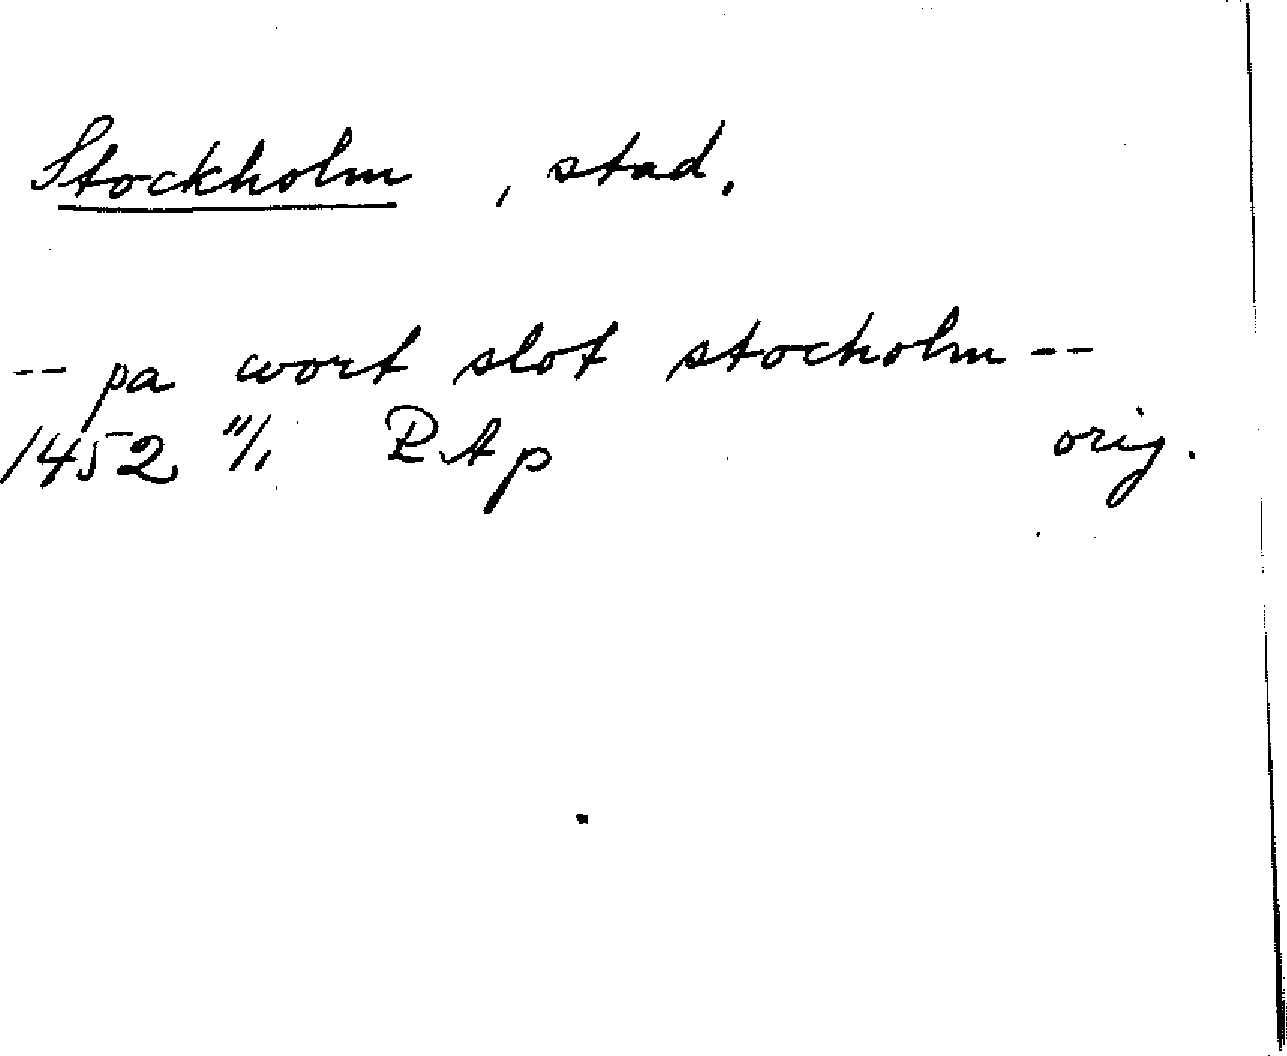 Stockholm , stad.
-- pa wort slot stockolm --
1452 11/1 RAp orig.